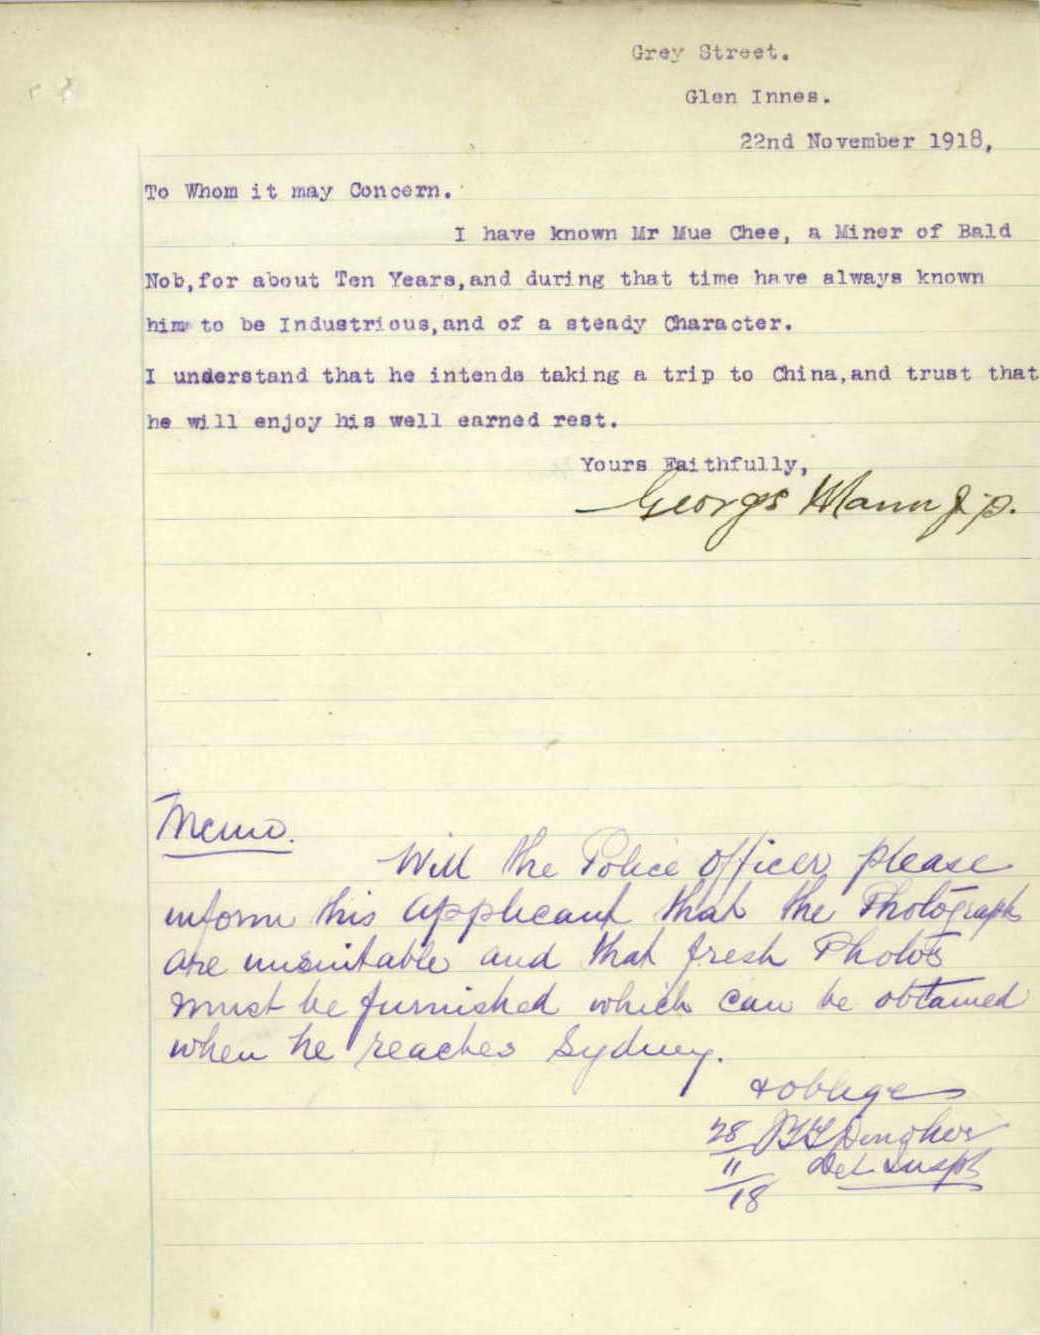 Grey Street.
Glen Innes.
22nd November 1918,
To Whom it may Concern.
I have known Mr Mue Chee, a Miner of Bald
Nob,for about Ten Years,and during that time have always known
him to be Industrious,and of a steady Character.
I understand that he intends taking a trip to China,and trust that
he will enjoy his well earned rest.
Yours Faithfully,
George Mann J.p.
Memo.
Will the Police Officer please
inform this applicant that the Photograph
are unsuitable and that fresh Photos
must be furnished which can be obtained
when he reaches Sydney.
& oblige
28
11
18
Det Inspt